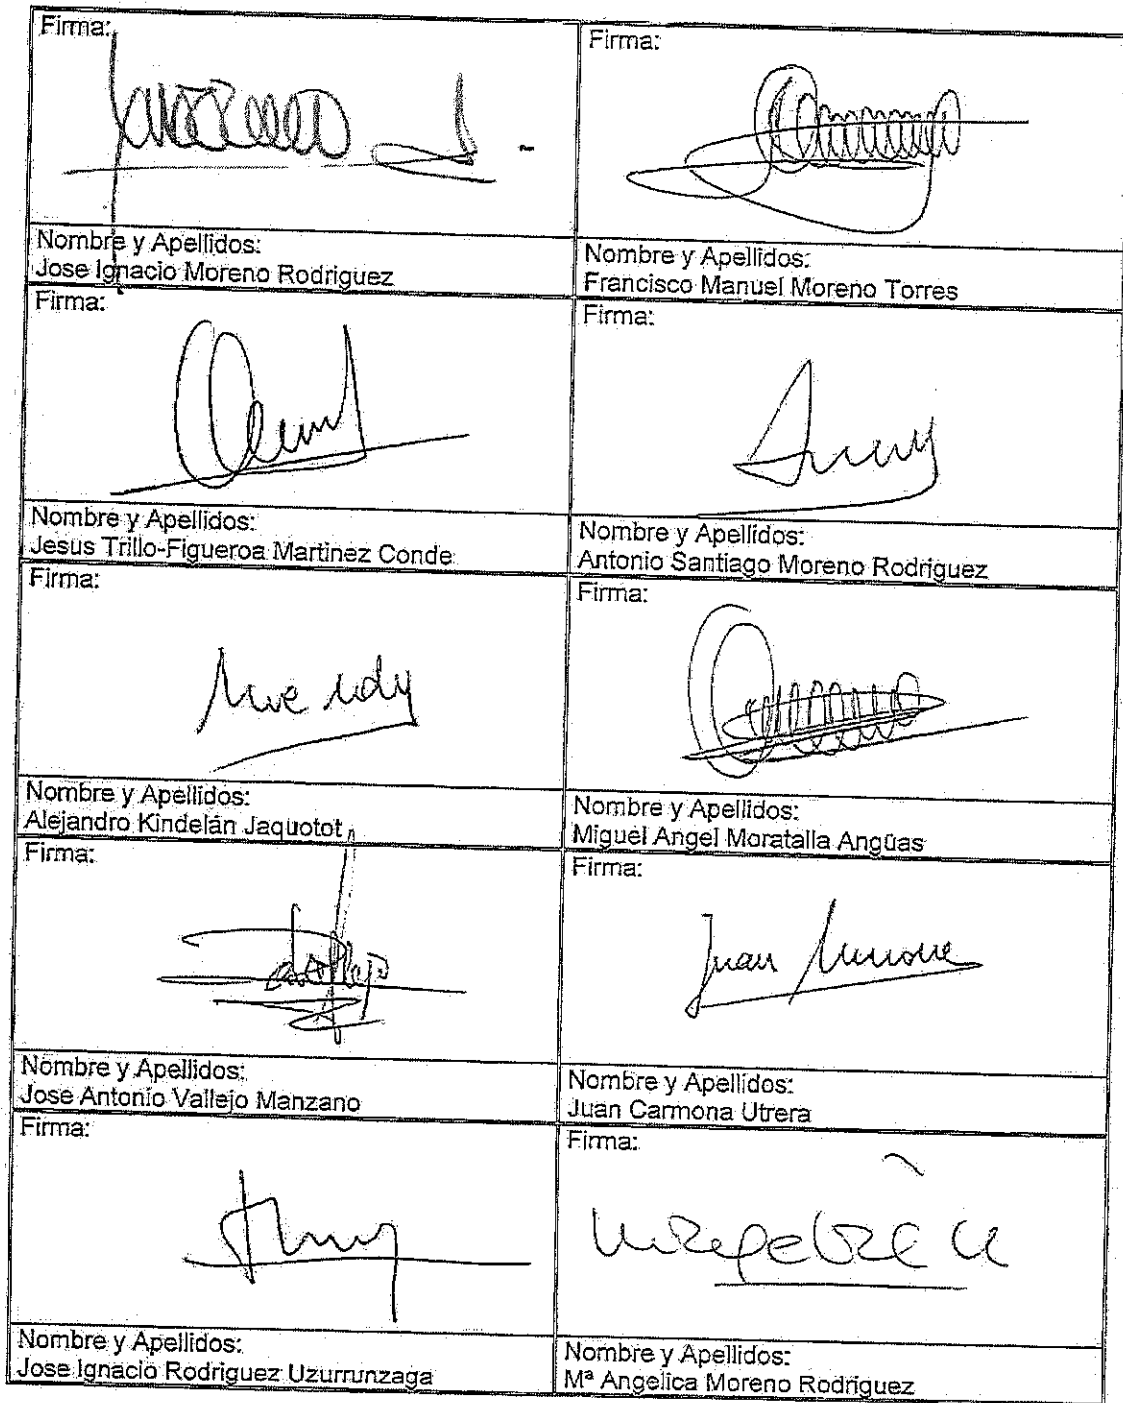 Firma:
Firma:
Nombre y Apellidos:
Jose Ignacio Moreno Rodriguez
Nombre y Apellidos:
Francisco Manuel Moreno Torres
Firma:
Firma:
Nombre y Apellidos:
Jesus Trillo-Figueroa Martinez Conde
Nombre y Apellidos:
Antonio Santiago Moreno Rodriguez
Firma:
Firma:
Nombre y Apellidos:
Alejandro Kindelán Jaquotot
Nombre y Apellidos:
Miguel Angel Moratalla Angüas
Firma:
Firma:
Juan
Nombre y Apellidos:
Jose Antonio Vallejo Manzano
Nombre y Apellidos:
Juan Carmona Utrera
Firma:
Firma:
Nombre y Apellidos:
Jose Ignacio Rodriguez Uzurrunzaga
Nombre y Apellidos:
Mª Angelica Moreno Rodriguez